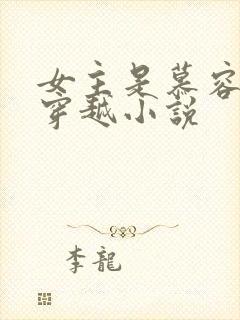 女主是慕容
穿越小説
李龍